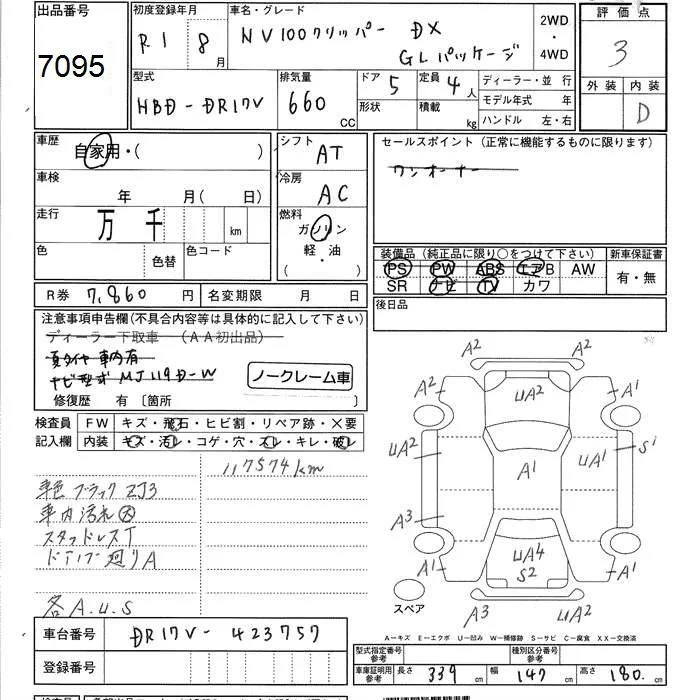 出品番号
7095
初度登録年月
R1 8月
車名・グレード
NV100クリッパー DX
GLパッケージ
2WD
・
4WD
評価点
3
外装 内装
D
型式
HBD-DR17V
排気量
660 CC
ドア 5
形状
定員 4人
積載 kg
ディーラー・並行
モデル年式 年
ハンドル 左・右
車歴
自家用・( )
車検
年 月(日)
走行
万千 km
色 色替
色コード
シフト
AT
冷房
AC
燃料
ガソリン
軽・油
( ・ )
セールスポイント(正常に機能するものに限ります)
ワンオーナー
装備品(純正品に限り○をつけて下さい)
PS PW ABS エアB AW
SR ナビ TV カワ
新車保証書
有・無
後日品
R券 7,860円
名変期限 月 日
注意事項申告欄(不具合内容等は具体的に記入して下さい)
ディーラー下取車 (AA初出品)
夏タイヤ車内有
ナビ型式 MJ119D-W
ノークレーム車
修復歴 有〔箇所 〕
検査員
記入欄
FW キズ・飛石・ヒビ割・リペア跡・×要
内装 キズ・汚レ・コゲ・穴・スレ・キレ・破レ
117574km
車色ブラック ZJ3
車内汚れ大
スタッドレスT
ドア内ブ廻りA
各A.U.S
A2
A2 UA2 A1
UA2 A1 UA1 S1
A3
A1 UA4 S2 A1
スペア
A3 UA2
A-キズ E-エクボ U-凹み W-補修跡 S-サビ C-腐食 XX-交換済
車台番号
DR17V-423757
登録番号
型式指定番号
参考
種別区分番号
参考
車庫証明用
参考
長さ 339cm 幅 147cm 高さ 180cm